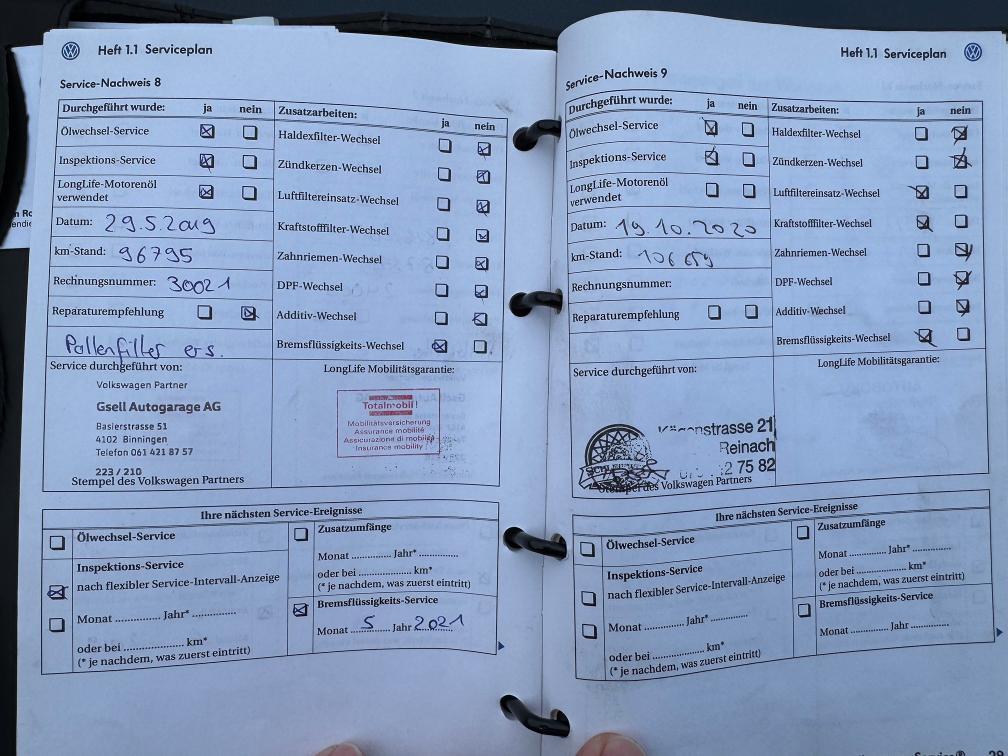 Heft 1.1 Serviceplan
Service-Nachweis 8
Durchgeführt wurde: ja nein
Ölwechsel-Service
Inspektions-Service
LongLife-Motorenöl
verwendet
Datum: 29.5.2019
km-Stand: 96795
Rechnungsnummer: 30021
Reparaturempfehlung
Pollenfilter ers.
Zusatzarbeiten: ja nein
Haldexfilter-Wechsel
Zündkerzen-Wechsel
Luftfiltereinsatz-Wechsel
Kraftstofffilter-Wechsel
Zahnriemen-Wechsel
DPF-Wechsel
Additiv-Wechsel
Bremsflüssigkeits-Wechsel
Service durchgeführt von:
Volkswagen Partner
Gsell Autogarage AG
Baslerstrasse 51
4102 Binningen
Telefon 061 421 87 57
223 / 210
Stempel des Volkswagen Partners
LongLife Mobilitätsgarantie:
Totalmobil!
Mobilitätsversicherung
Assurance mobilité
Assicurazione di mobilità
Insurance mobility
Ihre nächsten Service-Ereignisse
Ölwechsel-Service
Inspektions-Service
nach flexibler Service-Intervall-Anzeige
Monat ............ Jahr* .............
oder bei .................. km*
(* je nachdem, was zuerst eintritt)
Zusatzumfänge
Monat ............ Jahr* ............
oder bei .................. km*
(* je nachdem, was zuerst eintritt)
Bremsflüssigkeits-Service
Monat 5 Jahr 2021
Heft 1.1 Serviceplan
Service-Nachweis 9
Durchgeführt wurde: ja nein
Ölwechsel-Service
Inspektions-Service
LongLife-Motorenöl
verwendet
Datum: 19.10.2020
km-Stand: 106
Rechnungsnummer:
Reparaturempfehlung
Zusatzarbeiten: ja nein
Haldexfilter-Wechsel
Zündkerzen-Wechsel
Luftfiltereinsatz-Wechsel
Kraftstofffilter-Wechsel
Zahnriemen-Wechsel
DPF-Wechsel
Additiv-Wechsel
Bremsflüssigkeits-Wechsel
Service durchgeführt von:
21
Reinach
75 82
Stempel des Volkswagen Partners
LongLife Mobilitätsgarantie:
Ihre nächsten Service-Ereignisse
Ölwechsel-Service
Inspektions-Service
nach flexibler Service-Intervall-Anzeige
Monat ............ Jahr* .............
oder bei .................. km*
(* je nachdem, was zuerst eintritt)
Zusatzumfänge
Monat ............ Jahr* ............
oder bei .................. km*
(* je nachdem, was zuerst eintritt)
Bremsflüssigkeits-Service
Monat ............ Jahr ............